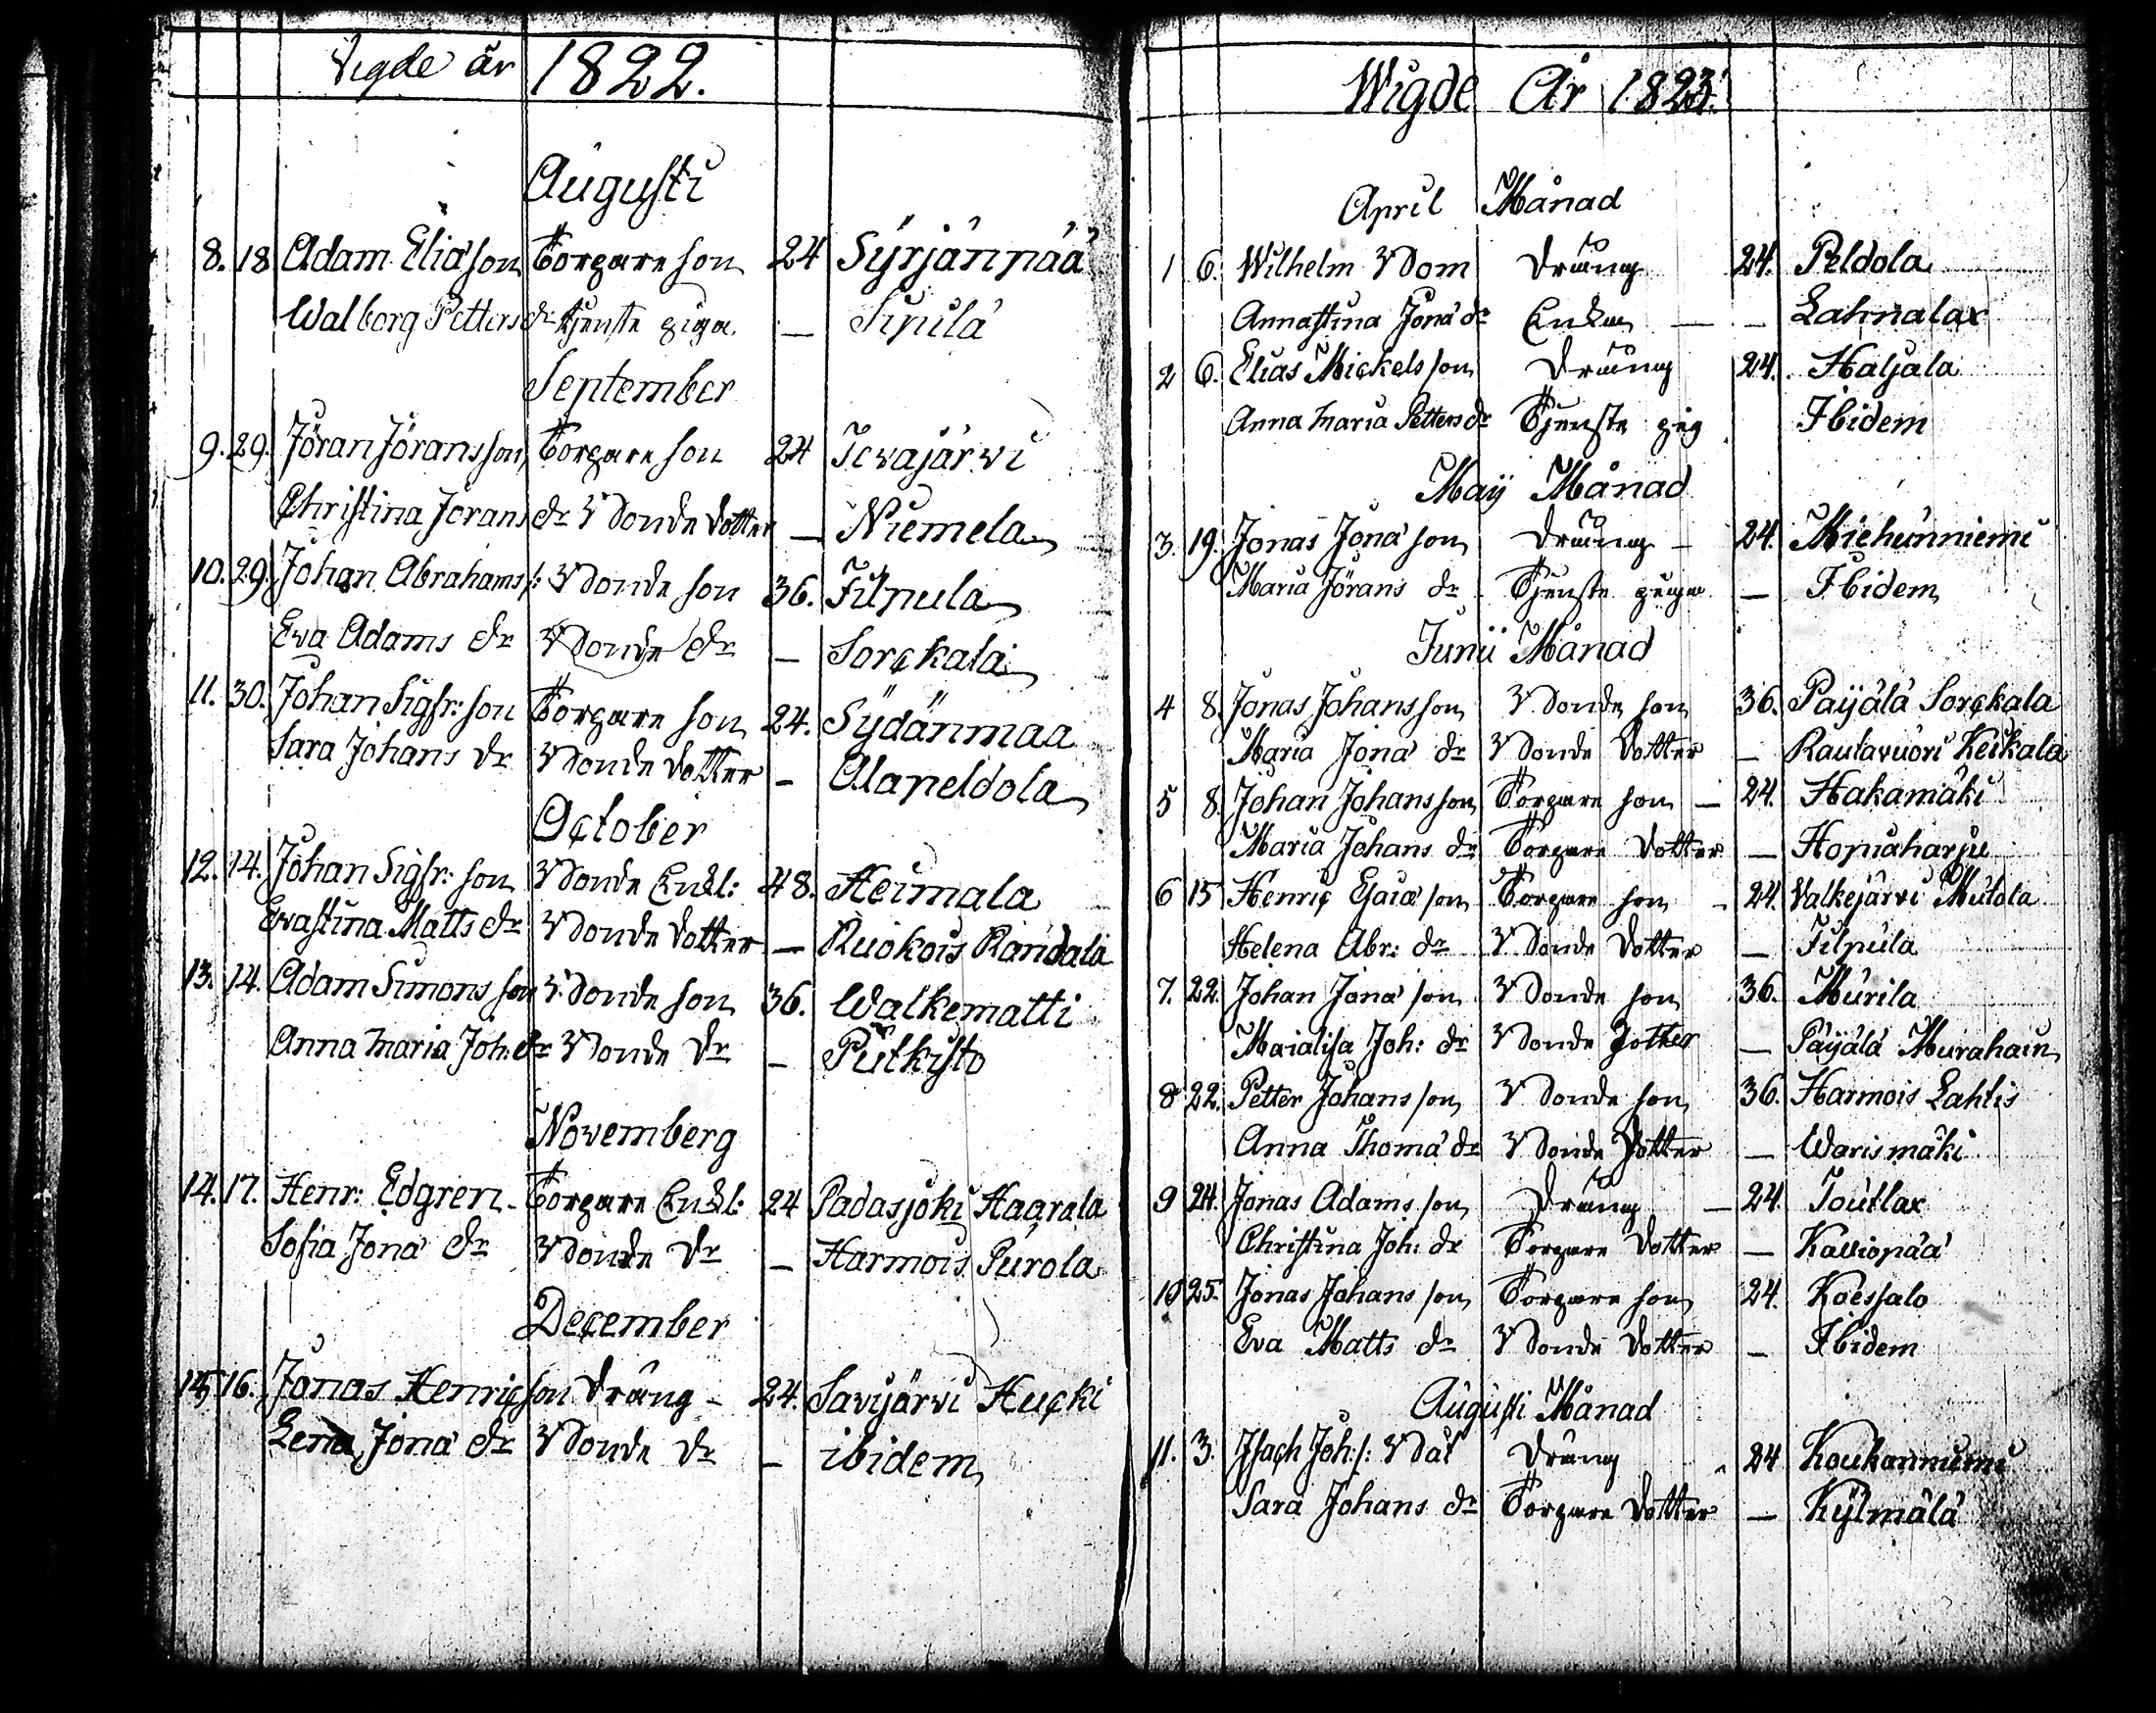 Vigde år 1822.
Augusti
8. 18 Adam Eliæ son Torpare son 24 Syrjänpää
Walborg Petters dr tjenste piga — Sipilä
September
9. 29. Jöran Jöransson Torpare son 24 Tevajärvi
Christina Jörans dr Bonde dotter — Niemela
10. 29. Johan Abrahams s: Bonde son 36. Filpula
Eva Adams dr Bonde dr — Sorckala
11. 30. Johan Sigfr: son Torpare son 24. Sydänmaa
Sara Johans dr Bonde dotter — Alapeldola
October
12. 14. Johan Sigfr: son Bonde Enkl: 48. Heimala
Evastina Matts dr Bonde dotter — Ruokois Randala
13. 14. Adam Simons son Bonde son 36. Walkematti
Anna Maria Joh: dr Bonde dr — Putkisto
November
14. 17. Henr: Edgren - Torpare Enkl: 24 Padasjoki Hagrala
Sofia Jona dr Bonde dr — Harmois Pirola
December
15 16. Jonas Henricson dräng - 24. Savijärvi Hucki
Lena Jona dr Bonde dr — ibidem
Wigde År 1823.
April Månad
1 6. Wilhelm dräng 24. Peldola
Annastina Jona dr Enka — Lahnalax
2 6. Elias Mickelsson dräng 24. Haljala
Anna Maria Petters dr Tjenste pig Ibidem
Maij Månad
3. 19. Jonas Jona son dräng — 24. Miehunniemi
Maria Jörans dr Tjenste piga — Ibidem
Junii Månad
4 8. Jonas Johansson Bonde son 36. Päijälä Sorckala
Maria Jona dr Bonde dotter — Rautavuori Keikala
5 8. Johan Johansson Torpare son — 24. Hakamäki
Maria Johans dr Torpare dotter — Hopiaharju
6 15 Henric Esaiæ son Torpare son - 24. Valkejärvi Mutola
Helena Abr: dr Bonde dotter — Filpula
7. 22. Johan Jona son Bonde son 36. Murila
Maialisa Joh: dr Bonde dotter — Päijälä Murahain
8 22. Petter Johansson Bonde son 36. Harmois Lahtis
Anna Thoma dr Bonde dotter — Warismäki
9 24. Jonas Adams son dräng — 24. Toutlax
Christina Joh: dr Torpare dotter — Kalliopää
10 25. Jonas Johans son Torpare son 24. Koessalo
Eva Matts dr Bonde dotter — Ibidem
Augusti Månad
11. 3. Isach Joh: s: dräng 24 Koukanniemi
Sara Johans dr Torpare dotter — Kylmälä